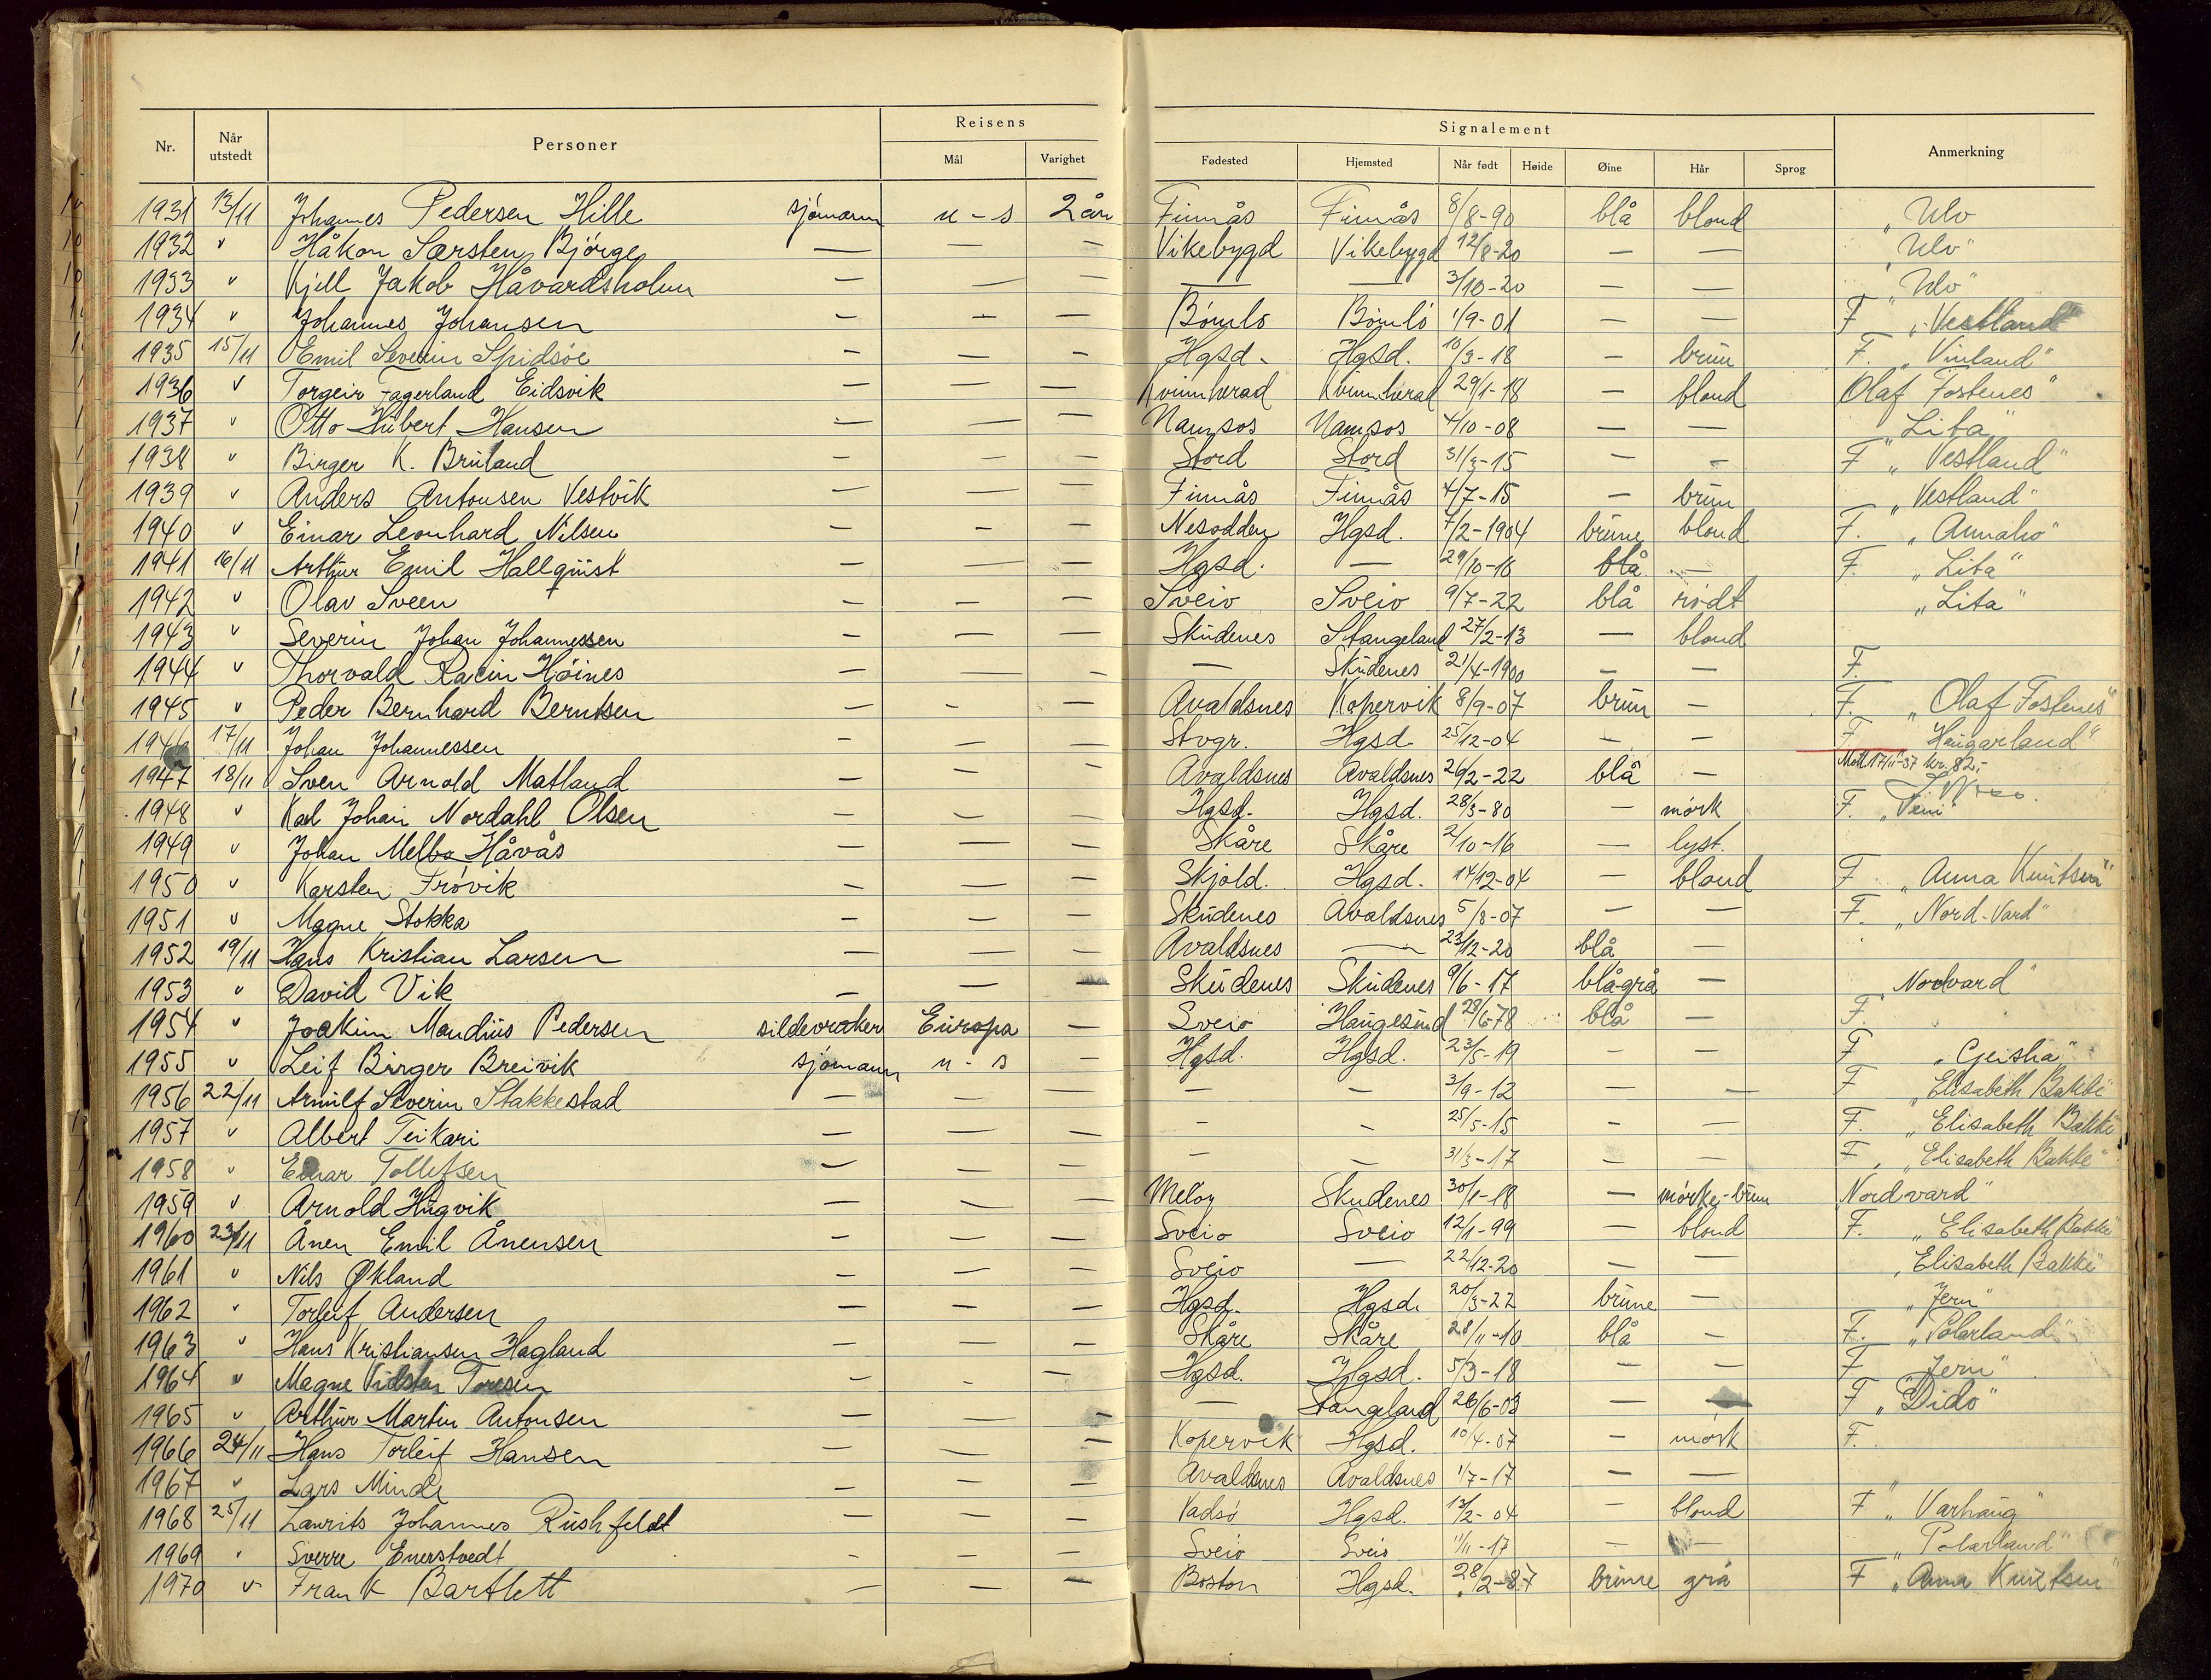 Nr. Når utstedt Personer Reisens Mål Varighet Signalement Fødested Hjemsted Når født Høide Øine Hår Sprog Anmerkning
1931 13/11 Johannes Pedersen Hille sjömann u-s 2 år Finnås Finnås 8/8-90 blå blond „Ulv
1932 " Håkon Sørsten Bjørge — — — Vikebygd Vikebygd 12/8-20 — — „Ulv"
1933 " Kjell Jakob Håvardsholm — — — — — 3/10-20 — — „Ulv"
1934 " Johannes Johansen — — — Bömlo Bömlö 1/9-01 — — F „Vestland"
1935 15/11 Emil Severin Spidsöe — — — Hgsd. Hgsd. 10/3-18 — brun F. „Vinland"
1936 " Torgeir Fagerland Eidsvik — — — Kvinnherad Kvinnherad 29/1-18 — blond Olaf Fostenes"
1937 " Otto Hubert Hansen — — — Namsos Namsos 4/10-08 — — „Lita"
1938 " Birger K. Bruland — — — Stord Stord 31/3-15 — — F „Vestland"
1939 " Anders Antonsen Vestvik — — — Finnås Finnås 4/7-15 — brun „Vestland"
1940 " Einar Leonhard Nilsen — — — Nesodden Hgsd. 7/2-1904 brune blond F. „Annaho"
1941 16/11 Arthur Emil Hallquist — — — Hgsd. — 29/10-16 blå — F. „Lita"
1942 " Olav Sveen — — — Sveio Sveio 9/7-22 blå rödt „Lita"
1943 " Severin Johan Johannessen — — — Skudenes Stangeland 27/2-13 — blond
1944 " Thorvald Racin Höines — — — — Skudenes 21/4-1900 — — F.
1945 " Peder Bernhard Berntsen — — — Avaldsnes Kopervik 8/9-07 brun — F. „Olaf Fostenes"
1946 17/11 Johan Johannessen — — — Stvgr. Hgsd. 25/12-04 — — F Haugarland"
1947 18/11 Sven Arnold Matland — — — Avaldsnes Avaldsnes 26/2-22 blå — Mott. 17/11-37 kr. 82.-
1948 " Karl Johan Nordahl Olsen — — — Hgsd. Hgsd. 28/3-80 — mörk F.
1949 " Johan Melbo Håvås — — — Skåre Skåre 2/10-16 — lyst.
1950 " Karsten Frövik — — — Skjold. Hgsd. 14/12-04 — blond F „Anna Knutsen"
1951 " Magne Stokka — — — Skudenes Avaldsnes 5/8-07 — — F. „Nord-Vard"
1952 19/11 Hans Kristian Larsen — — — Avaldsnes — 23/12-20 blå —
1953 " David Vik — — — Skudenes Skudenes 9/6-17 blågrå — Nordvard"
1954 " Joakim Mandius Pedersen sildevraker Europa — Sveio Haugesund 29/6-78 blå — F.
1955 " Leif Birger Breivik sjömann u-s — Hgsd. Hgsd. 23/5-19 — — F „Geisha"
1956 22/11 Arnulf Severin Stakkestad — — — — — 3/9-12 — — F „Elisabeth Bakke"
1957 " Albert Teikari — — — — — 25/5-15 — — F. „Elisabeth Bakke"
1958 " Einar Tollefsen — — — — — 31/3-17 — — F. „Elisabeth Bakke"
1959 " Arnold Hugvik — — — Melöy Skudenes 30/1-18 — mörke-brun Nordvard"
1960 23/11 Ånen Emil Ånensen — — — Sveio Sveio 12/1-99 — blond F. „Elisabeth Bakke"
1961 " Nils Økland — — — Sveio — 22/12-20 — — „Elisabeth Bakke"
1962 " Torleif Andersen — — — Hgsd. Hgsd. 20/3-22 brune — „Jern"
1963 " Hans Kristiansen Hagland — — — Skåre Skåre 28/11-10 blå — F. „Polarland"
1964 " Magne Vidstar Toresen — — — Hgsd. Hgsd. 5/3-18 — — F „Jern"
1965 " Arthur Martin Antonsen — — — — Stangeland 26/6-03 — — F „Dido"
1966 24/11 Hans Torleif Hansen — — — Kopervik Hgsd. 10/4-07 — mörk F.
1967 " Lars Minde — — — Avaldsnes Avaldsnes 1/7-17 — — "
1968 25/11 Laurits Johannes Rushfeldt — — — Vadsö Hgsd. 13/2-04 — blond F „Varhaug"
1969 " Sverre Enerstvedt — — — Sveio Sveio 11/11-17 — — „Polarland"
1970 " Frank Bartlett — — — Boston Hgsd. 28/2-87 brune grå F „Anna Knutsen"